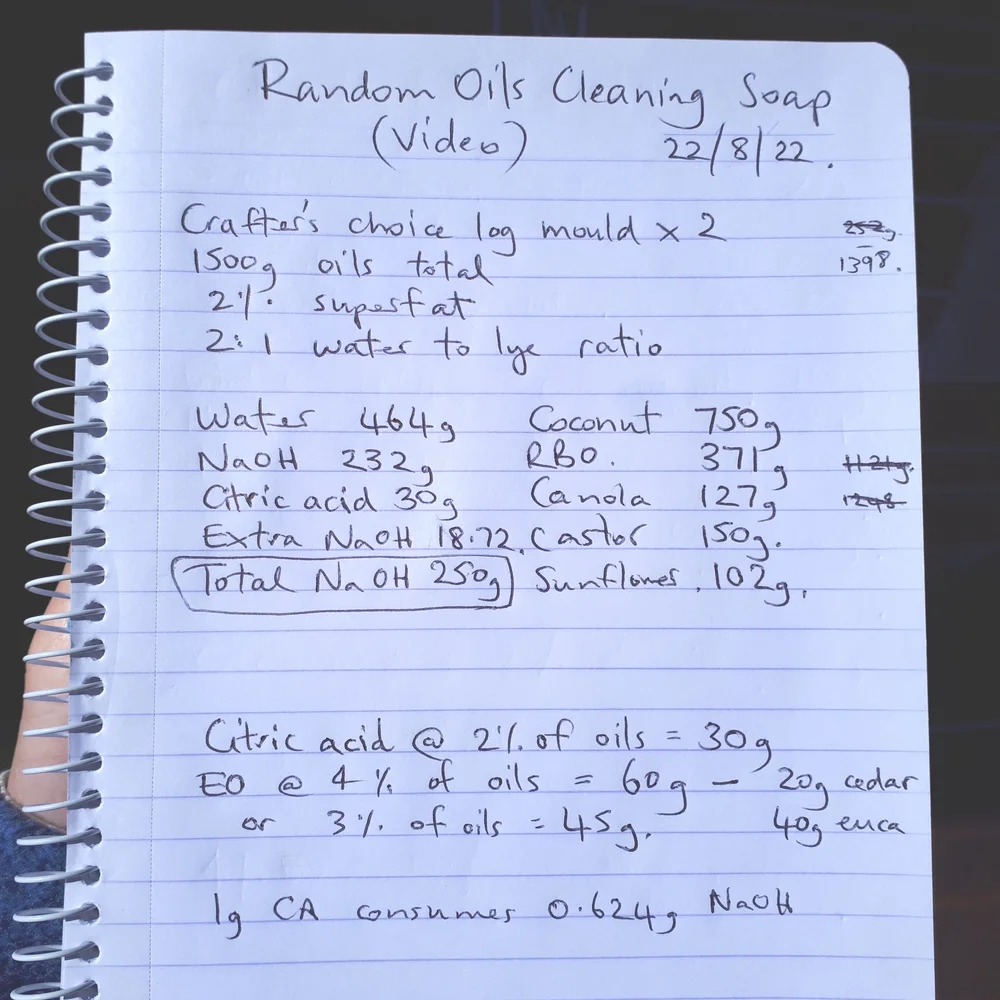 Random Oils Cleaning Soap
(Video) 22/8/22.
Crafter's choice log mould x 2 252g.
1500g oils total 1398.
2% superfat
2:1 water to lye ratio
Water 464g Coconut 750g
NaOH 232g RBO. 371g 1121g.
Citric acid 30g Canola 127g 1248
Extra NaOH 18.72. Castor 150g.
Total NaOH 250g Sunflower. 102g.
Citric acid @ 2% of oils = 30g
EO @ 4% of oils = 60g – 20g cedar
or 3% of oils = 45g. 40g euca
1g CA consumes 0.624g NaOH